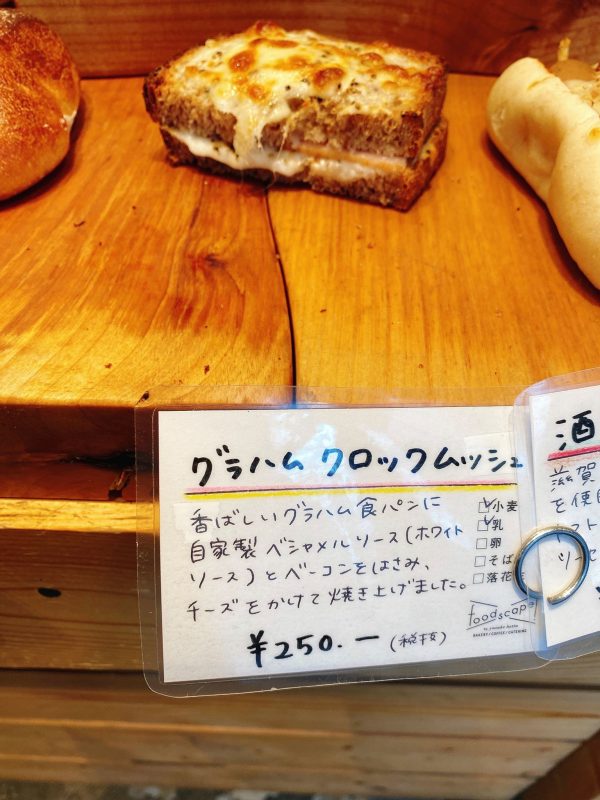 グラハム クロックムッシュ
香ばしいグラハム食パンに
自家製ベシャメルソース(ホワイト
ソース)とベーコンをはさみ、
チーズをかけて焼き上げました。
¥250.ー (税抜)
小麦
乳
卵
そば
落花
foodscape
BAKERY/COFFEE/CATERING
酒
滋賀
を使